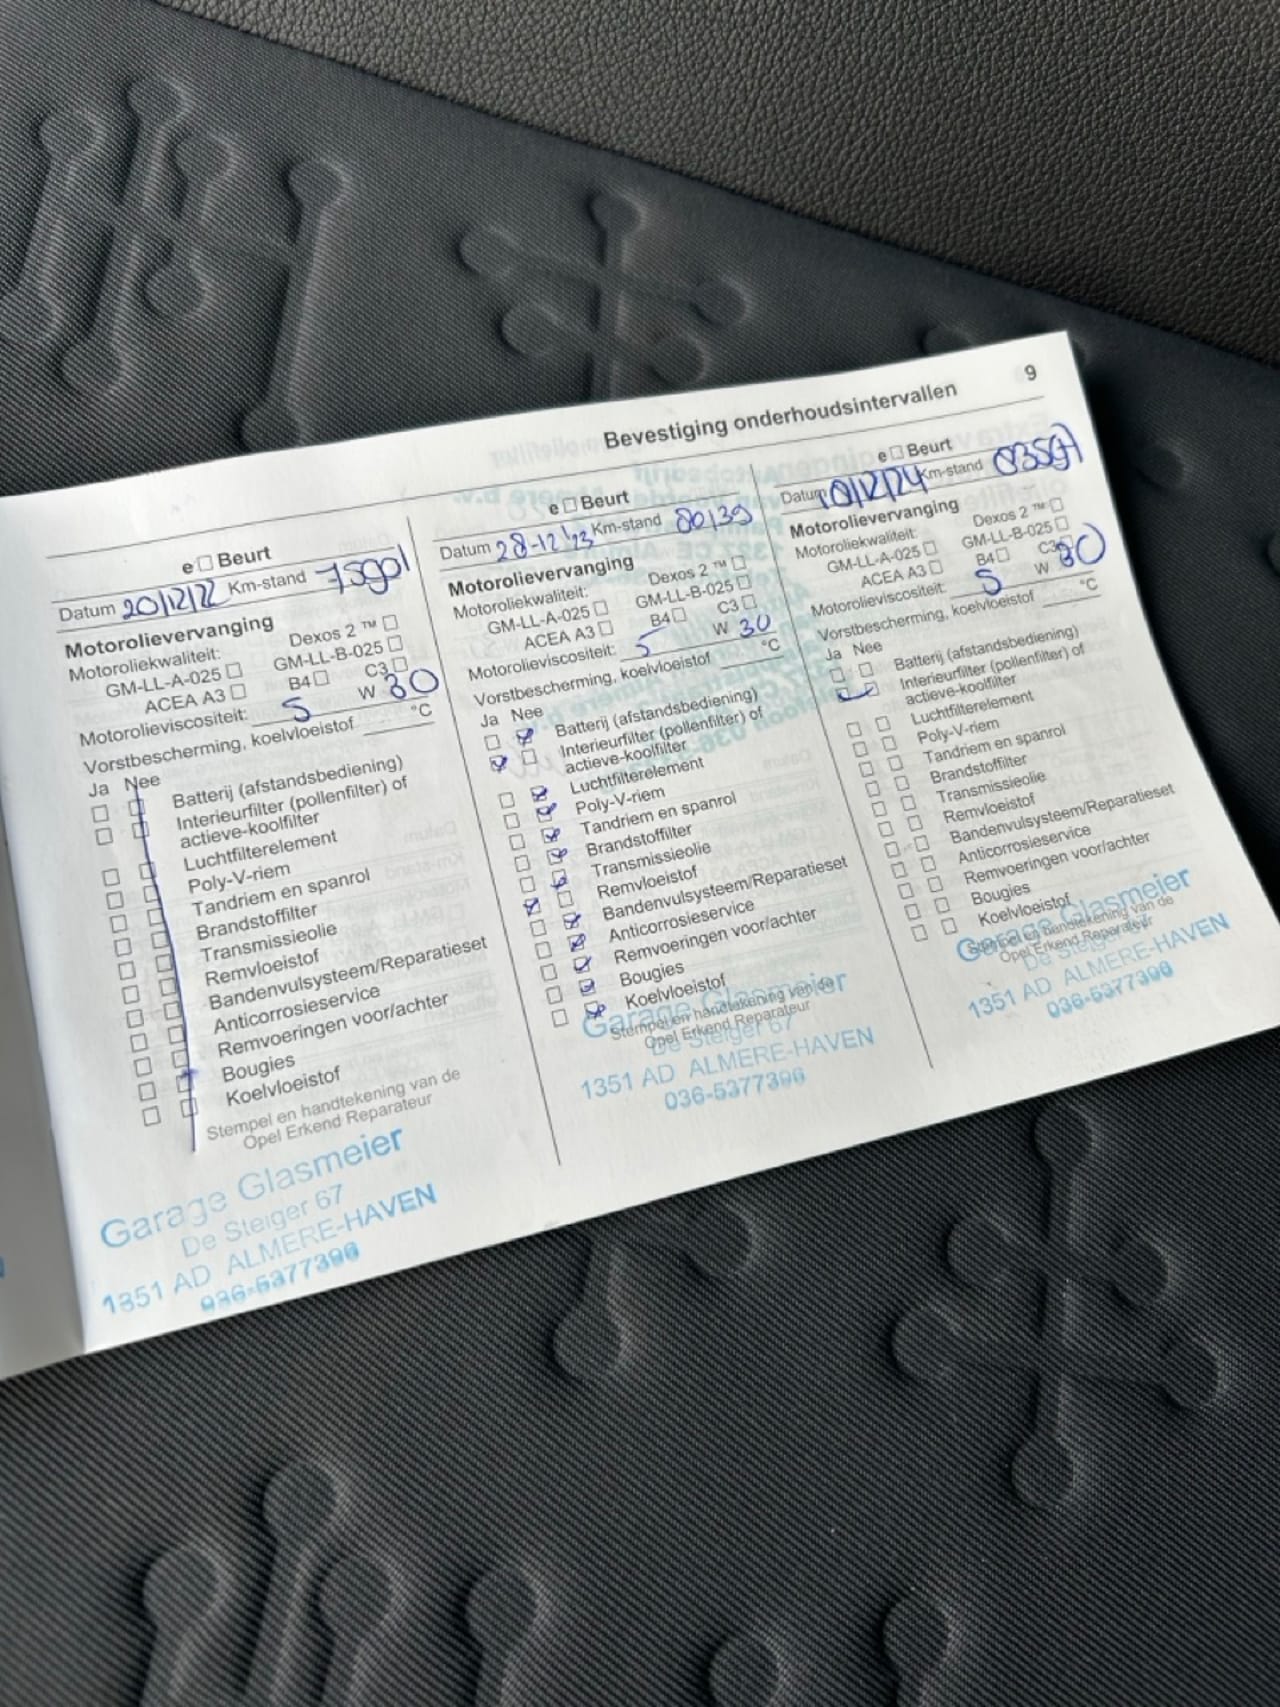 Bevestiging onderhoudsintervallen 9
e□ Beurt
Datum 20/12/22 Km-stand 75901
Motorolievervanging
Motoroliekwaliteit: Dexos 2 ™ □
GM-LL-A-025 □ GM-LL-B-025 □
ACEA A3 □ B4 □ C3 □
Motorolieviscositeit: 5 W 30
Vorstbescherming, koelvloeistof ____ °C
Ja Nee
□ □ Batterij (afstandsbediening)
□ □ Interieurfilter (pollenfilter) of
actieve-koolfilter
□ □ Luchtfilterelement
□ □ Poly-V-riem
□ □ Tandriem en spanrol
□ □ Brandstoffilter
□ □ Transmissieolie
□ □ Remvloeistof
□ □ Bandenvulsysteem/Reparatieset
□ □ Anticorrosieservice
□ □ Remvoeringen voor/achter
□ □ Bougies
□ □ Koelvloeistof
Stempel en handtekening van de
Opel Erkend Reparateur
Garage Glasmeier
De Steiger 67
1351 AD ALMERE-HAVEN
036-5377396
e□ Beurt
Datum 28-12'23 Km-stand 80139
Motorolievervanging
Motoroliekwaliteit: Dexos 2 ™ □
GM-LL-A-025 □ GM-LL-B-025 □
ACEA A3 □ B4 □ C3 □
Motorolieviscositeit: 5 W 30
Vorstbescherming, koelvloeistof ____ °C
Ja Nee
□ ☑ Batterij (afstandsbediening)
☑ □ Interieurfilter (pollenfilter) of
actieve-koolfilter
□ ☑ Luchtfilterelement
□ ☑ Poly-V-riem
□ ☑ Tandriem en spanrol
□ ☑ Brandstoffilter
□ ☑ Transmissieolie
☑ □ Remvloeistof
□ ☑ Bandenvulsysteem/Reparatieset
□ ☑ Anticorrosieservice
□ ☑ Remvoeringen voor/achter
□ ☑ Bougies
□ ☑ Koelvloeistof
Stempel en handtekening van de
Opel Erkend Reparateur
Garage Glasmeier
De Steiger 67
1351 AD ALMERE-HAVEN
036-5377396
e□ Beurt
Datum 10/12/24 Km-stand
Motorolievervanging
Motoroliekwaliteit: Dexos 2 ™ □
GM-LL-A-025 □ GM-LL-B-025 □
ACEA A3 □ B4 □ C3 □
Motorolieviscositeit: 5 W 30
Vorstbescherming, koelvloeistof ____ °C
Ja Nee
□ □ Batterij (afstandsbediening)
☑ □ Interieurfilter (pollenfilter) of
actieve-koolfilter
□ □ Luchtfilterelement
□ □ Poly-V-riem
□ □ Tandriem en spanrol
□ □ Brandstoffilter
□ □ Transmissieolie
□ □ Remvloeistof
□ □ Bandenvulsysteem/Reparatieset
□ □ Anticorrosieservice
□ □ Remvoeringen voor/achter
□ □ Bougies
□ □ Koelvloeistof
Stempel en handtekening van de
Opel Erkend Reparateur
Garage Glasmeier
De Steiger
1351 AD ALMERE-HAVEN
036-5377396